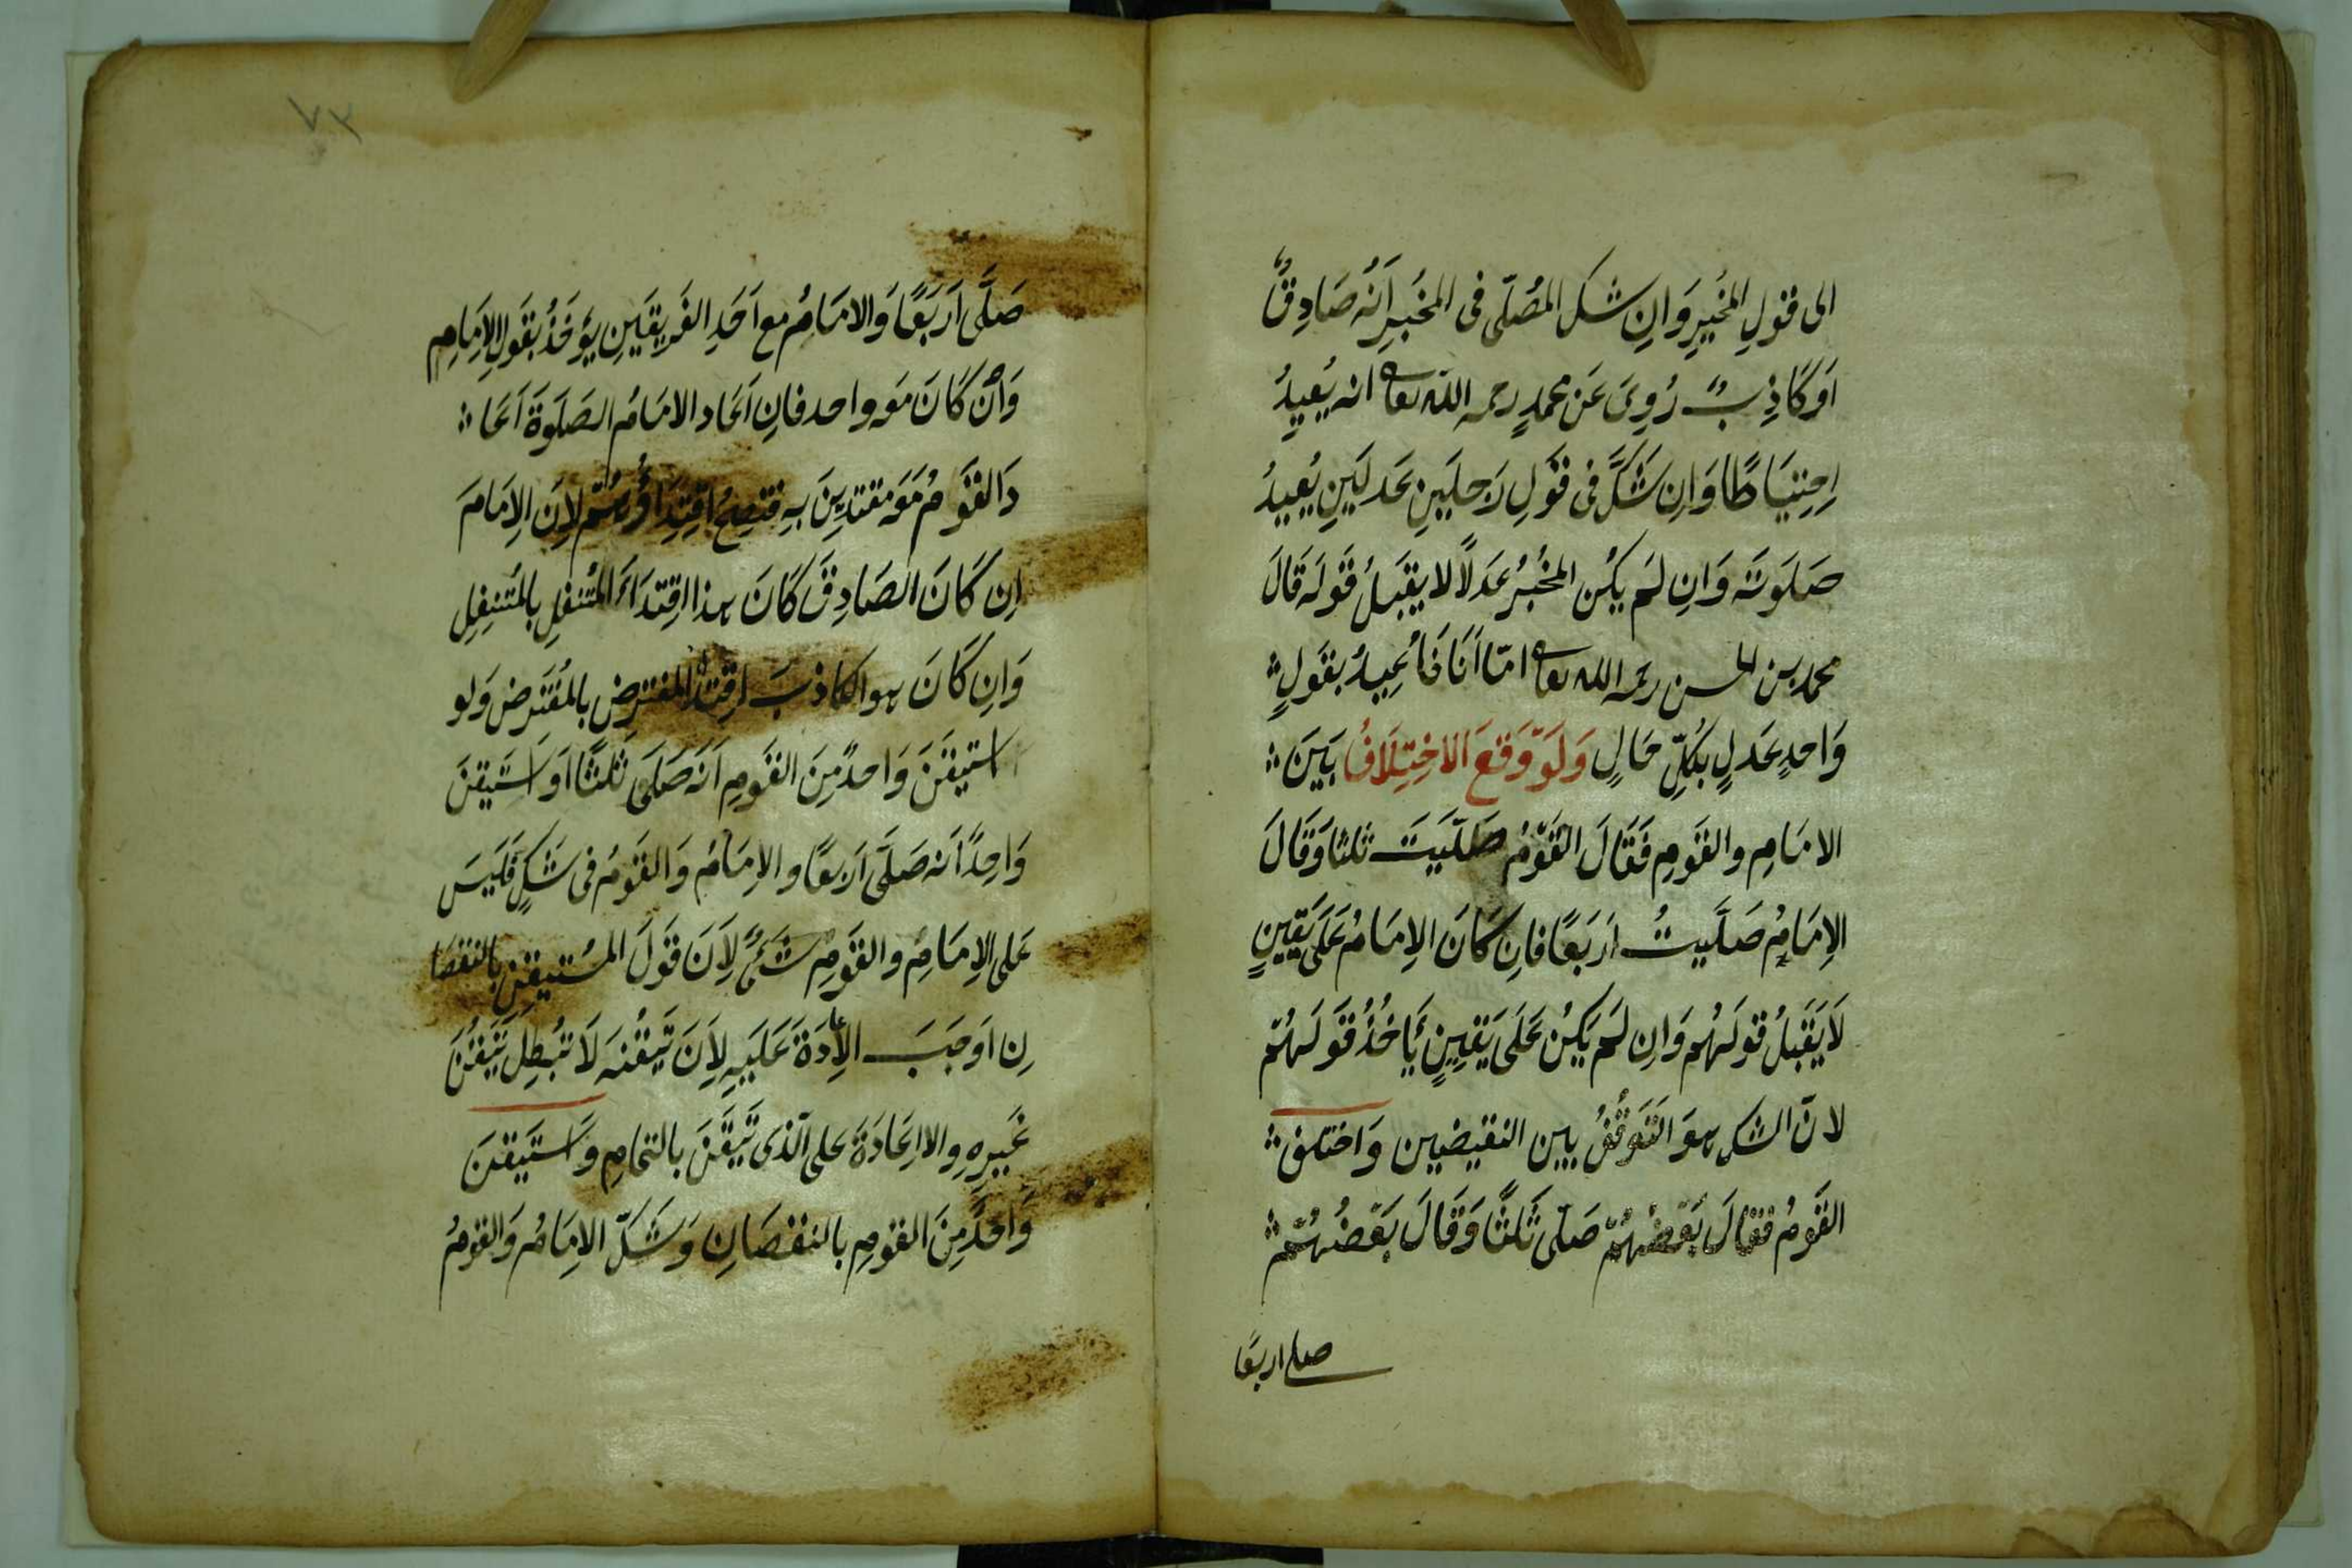 الى قولِ المُخبِرِ وَاِن شك المُصَلّى فى المُخبِرِ اَنَّه صَادِقٌ
اَو كَاذِبٌ رُوِىَ عَن محمدٍ رحمه الله تعا انه يُعِيدُ
اِحتِيَاطًا وَاِن شَكَّ فى قَولِ رَجلَينِ عَدلَينِ يُعِيدُ
صَلوتَه وَاِن لَم يكُن المُخبِرُ عَدلًا لا يقبَلُ قَولَه قَالَ
محمد بن الحسن رحمه الله تعا امّا اَنَا فَاُعِيدُ بقَولِ
وَاحدٍ عَدلٍ بكُلِّ حَالٍ وَلَو وَقعَ الاختِلَافُ بَينَ
الامَامِ والقَومِ فَقَالَ القَومُ صَلَّيتَ ثلثا وَقَالَ
الاِمَامُ صَلَّيتُ اَربَعًا فاِن كَانَ الاِمَامُ عَلى يَقِينٍ
لَا يَقبَلُ قولَهُم وَاِن لَم يَكُن عَلَى يَقِينٍ يَأخُذُ قَولَهُم
لانّ الشك هوَ التَوَقُّفُ بين النقيضين وَاختلف
القَومُ فقَالَ بَعضُهُم صَلّى ثَلثًا وَقَالَ بَعضُهُم
صلى اربعًا
٧٢
صَلَّى اَربَعًا وَالامَامُ مع اَحَدِ الفَرِيقَينِ يُؤخَذُ بقَولِ الاِمَامِ
وَاِن كَانَ مَعَه واحد فاِن اَعَاد الامَامُ الصَلَوةَ اَعَا
دَ القَومُ مَعَه مقتدِينَ بِهِ فتصِحُّ اقتِدَاؤُهُم لِاَنَ الاِمَامَ
اِن كَانَ الصَادِقَ كَانَ هذا اِقتدَاءَ المُتنفِلِ بالمُتَنفِلِ
وَاِن كَانَ هو الكاذبَ اِقتداء المفترِض بالمُفتَرض وَلو
استيقَنَ وَاحدٌ مِنَ القَومِ اَنَه صَلَى ثلثًا اَو استَيقنَ
وَاحِدٌ اَنه صَلَّى اَربعًا والاِمَامُ وَالقَومُ فى شَكٍ فَلَيسَ
عَلى الاِمَامِ والقَومِ شَئٌ لِاَنَ قَولَ المُستيقنِ بالنقصَا
نِ اَوجَبَ الاِعادَةَ عَلَيهِ لِاَنَ تَيَقُّنَه لَا تُبطِل تَيَقُّنَ
غَيرِهِ والااِعَادَةَ على الّذى تَيَقَّنَ بالتمامِ وَاستَيقنَ
وَاحدٌ مِنَ القومِ بالنقصَانِ وَشَكَّ الامَامُ وَالقومُ